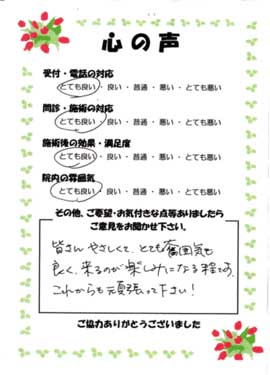 心の声
受付・電話の対応
とても良い・良い・普通・悪い・とても悪い
問診・施術の対応
とても良い・良い・普通・悪い・とても悪い
施術後の効果・満足度
とても良い・良い・普通・悪い・とても悪い
院内の雰囲気
とても良い・良い・普通・悪い・とても悪い
その他、ご要望・お気付きな点等ありましたら
ご意見をお聞かせ下さい。
皆さん やさしくて、とても雰囲気も
良く、来るのが楽しみになる程です。
これからも頑張って下さい!
ご協力ありがとうございました